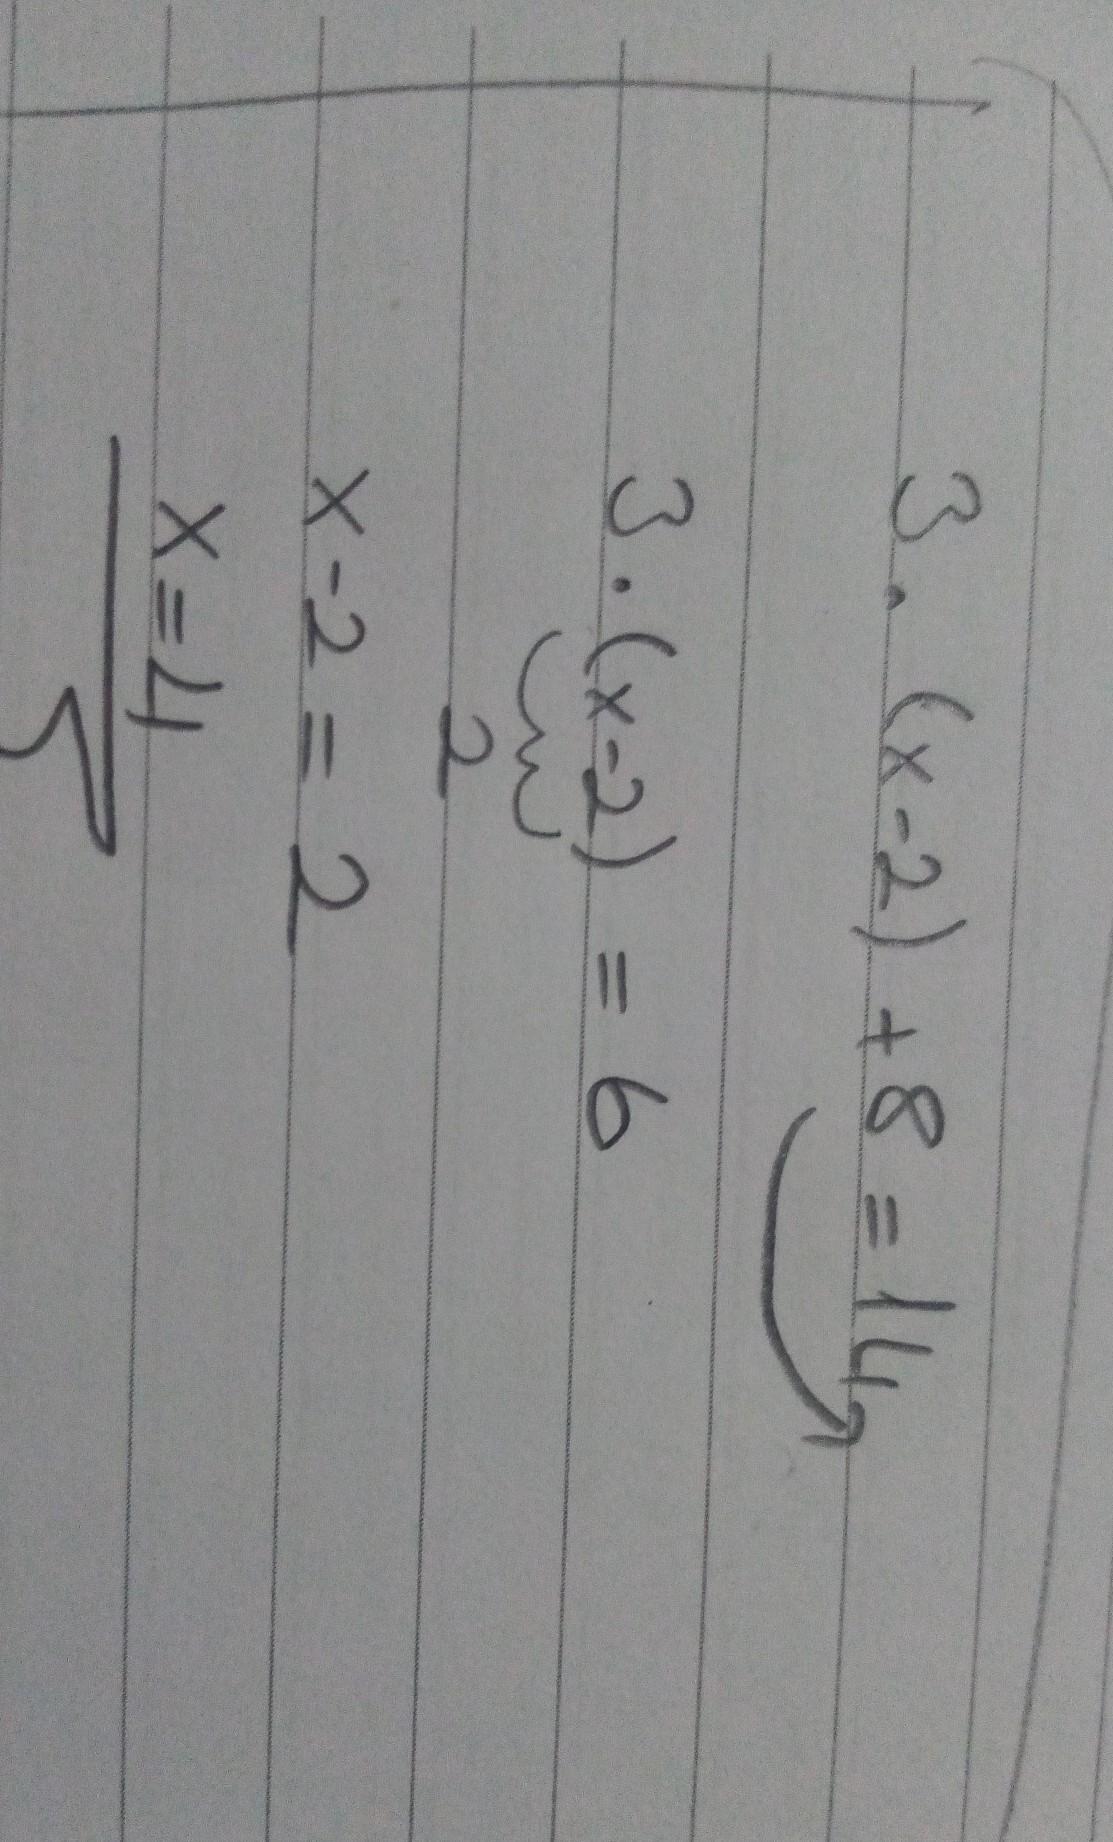 3 . (x - 2) + 8 = 14
3 . (x - 2) = 6
2
x - 2 = 2
x = 4